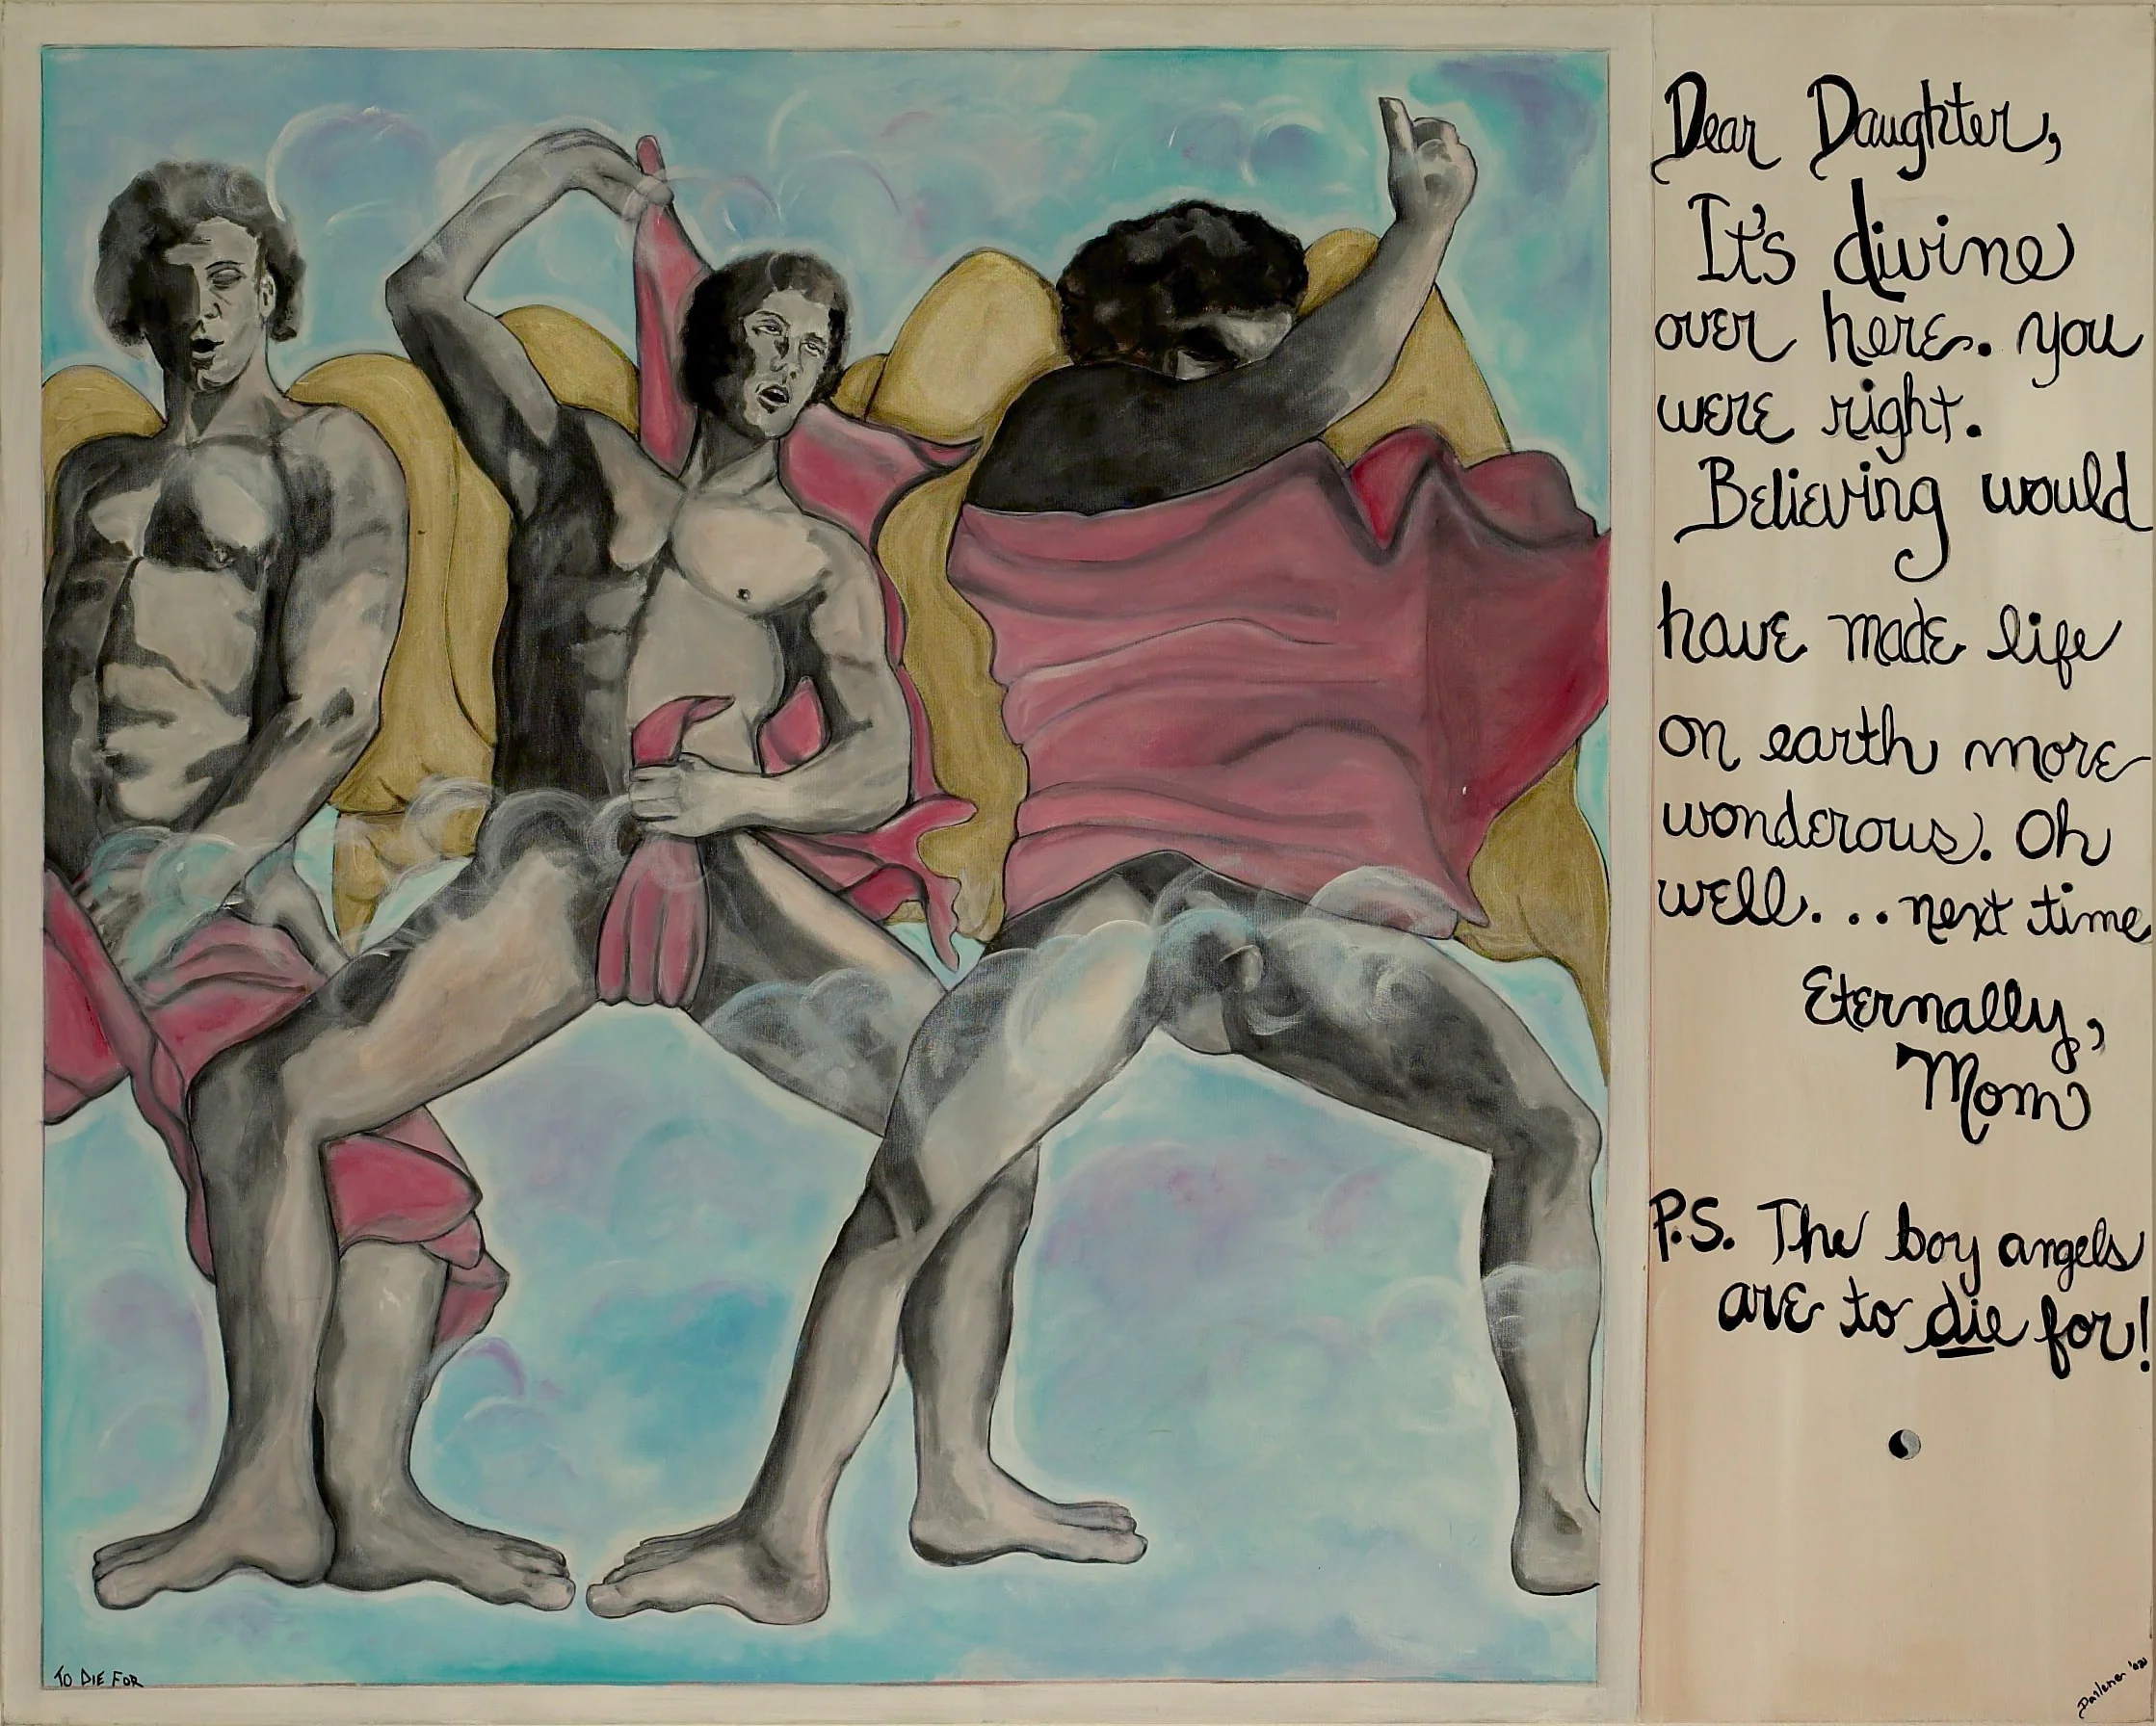 Dear Daughter,
It's divine
over here. you
were right.
Believing would
have made life
on earth more
wonderous. Oh
well... next time
Eternally,
Mom
P.S. The boy angels
are to die for!
TO DIE FOR